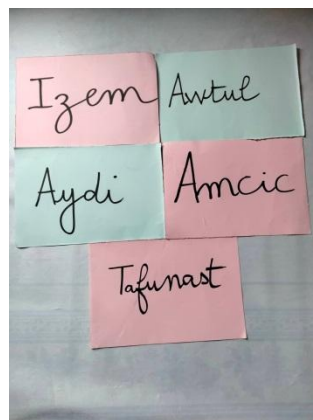 Izem
Awtul
Aydi
Amcic
Tafunast